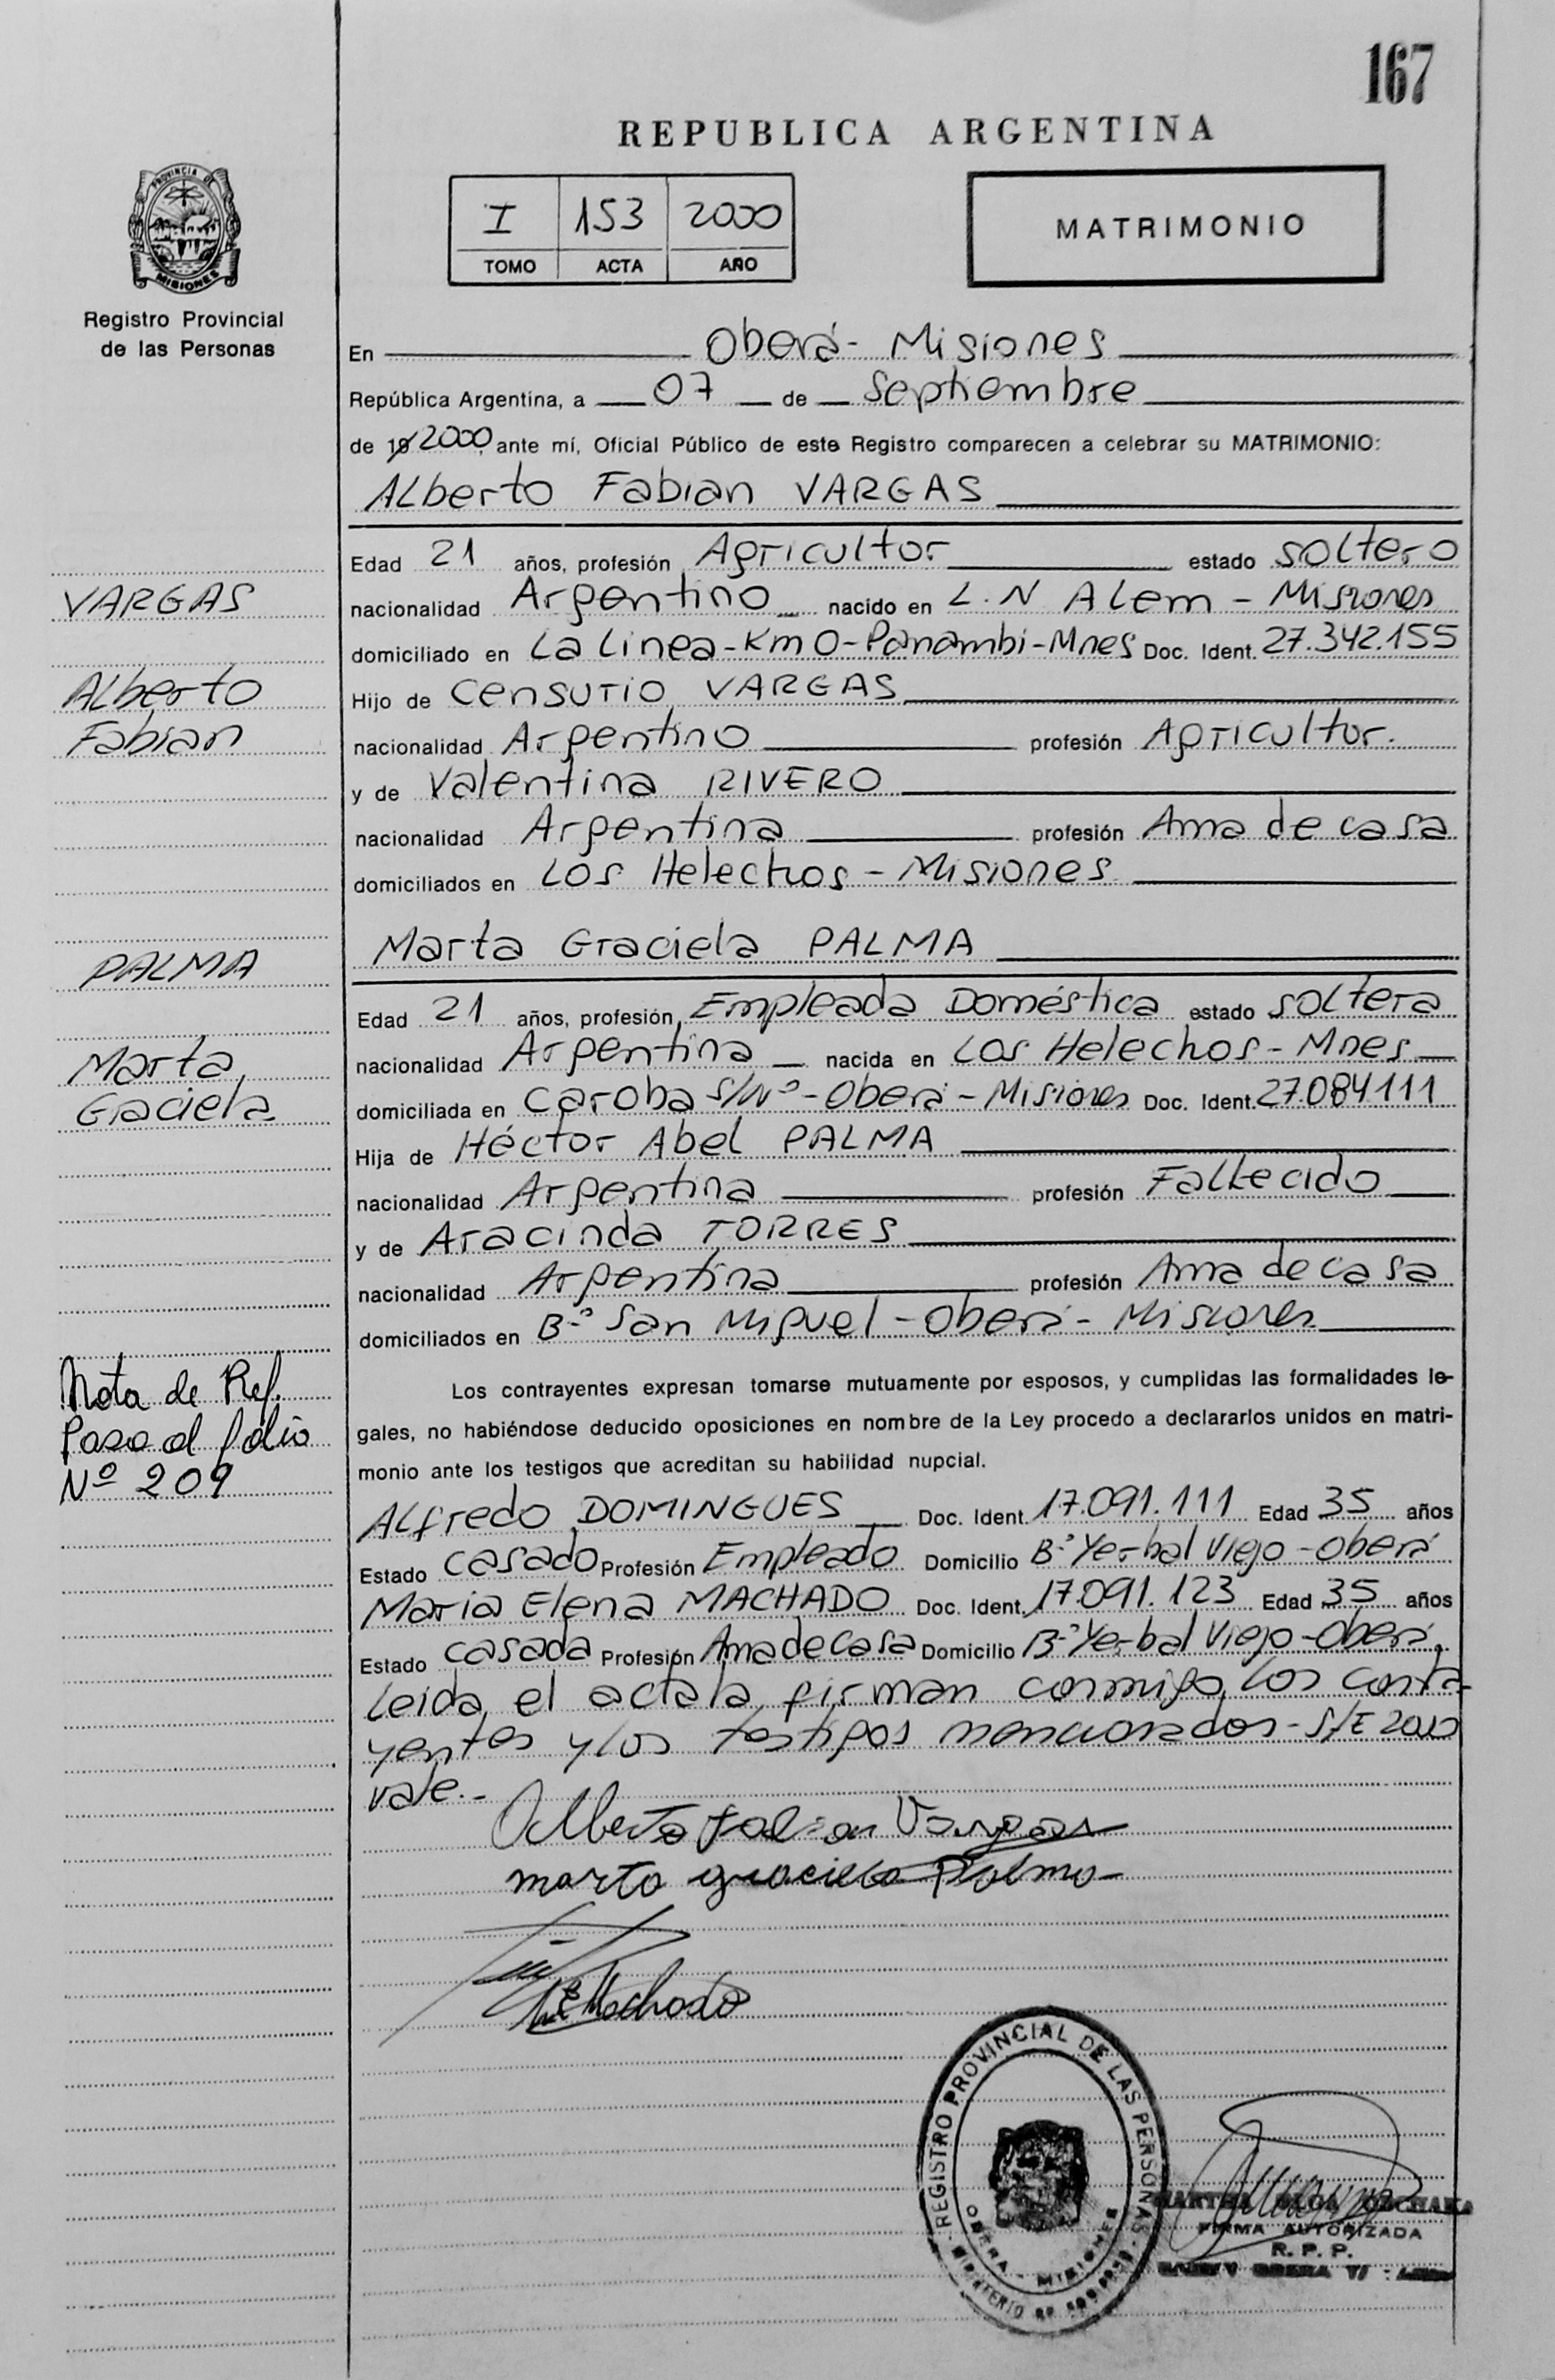 167
REPUBLICA ARGENTINA
I 153 2000
TOMO ACTA AÑO
MATRIMONIO
PROVINCIA DE
MISIONES
Registro Provincial
de las Personas
En Oberá - Misiones
República Argentina, a 07 de Septiembre
de 19 2000, ante mí, Oficial Público de este Registro comparecen a celebrar su MATRIMONIO:
Alberto Fabian VARGAS
Edad 21 años, profesión Agricultor estado soltero
VARGAS
nacionalidad Argentino nacido en L.N Alem - Misiones
domiciliado en La Linea-Km 0-Panambi-Mnes Doc. Ident. 27.342.155
Alberto
Hijo de Censurio VARGAS
Fabian
nacionalidad Argentino profesión Agricultor.
y de Valentina RIVERO
nacionalidad Argentina profesión Ama de casa
domiciliados en Los Helechos - Misiones
Marta Graciela PALMA
PALMA
Edad 21 años, profesión Empleada Doméstica estado soltera
nacionalidad Argentina nacida en Los Helechos - Mnes
Marta
domiciliada en Caroba S/Nº - Oberá - Misiones Doc. Ident. 27.084111
Graciela
Hija de Héctor Abel PALMA
nacionalidad Argentina profesión Fallecido
y de Aracinda TORRES
nacionalidad Argentina profesión Ama de casa
domiciliados en Bº San Miguel - Oberá - Misiones
Nota de Ref.
Pasa al folio
Nº 209
Los contrayentes expresan tomarse mutuamente por esposos, y cumplidas las formalidades le-
gales, no habiéndose deducido oposiciones en nombre de la Ley procedo a declararlos unidos en matri-
monio ante los testigos que acreditan su habilidad nupcial.
Alfredo DOMINGUES Doc. Ident. 17.091.111 Edad 35 años
Estado Casado Profesión Empleado Domicilio Bº Yerbal Viejo - Oberá
Maria Elena MACHADO Doc. Ident. 17.091.123 Edad 35 años
Estado Casada Profesión Ama de casa Domicilio Bº Yerbal Viejo - Oberá.
Leida el acta la firman conmigo los contra-
yentes y los testigos mencionados - S/E 2000
vale.-
Alberto Fabian Vargas
marta graciela Palma
M E Machado
REGISTRO PROVINCIAL DE LAS PERSONAS
OBERA - MISIONES
FIRMA AUTORIZADA
R. P. P.